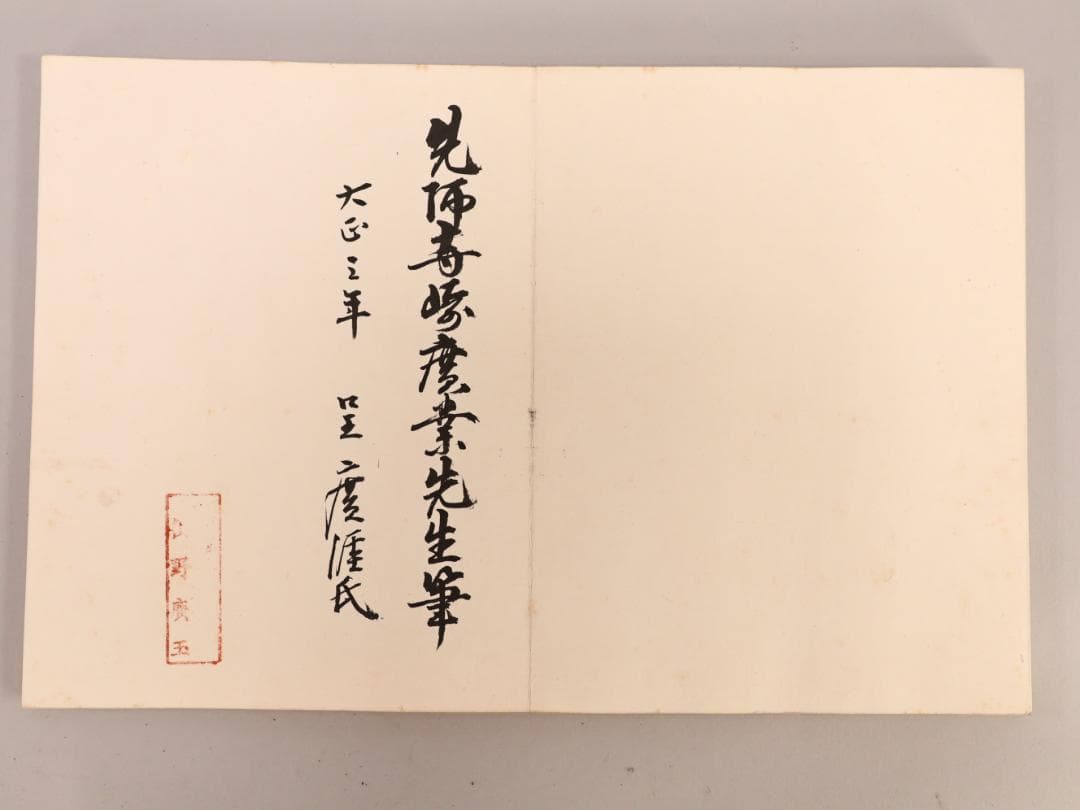 先師寺崎廣業先生筆
大正三年 呈 廣涯氏
野 廣 玉